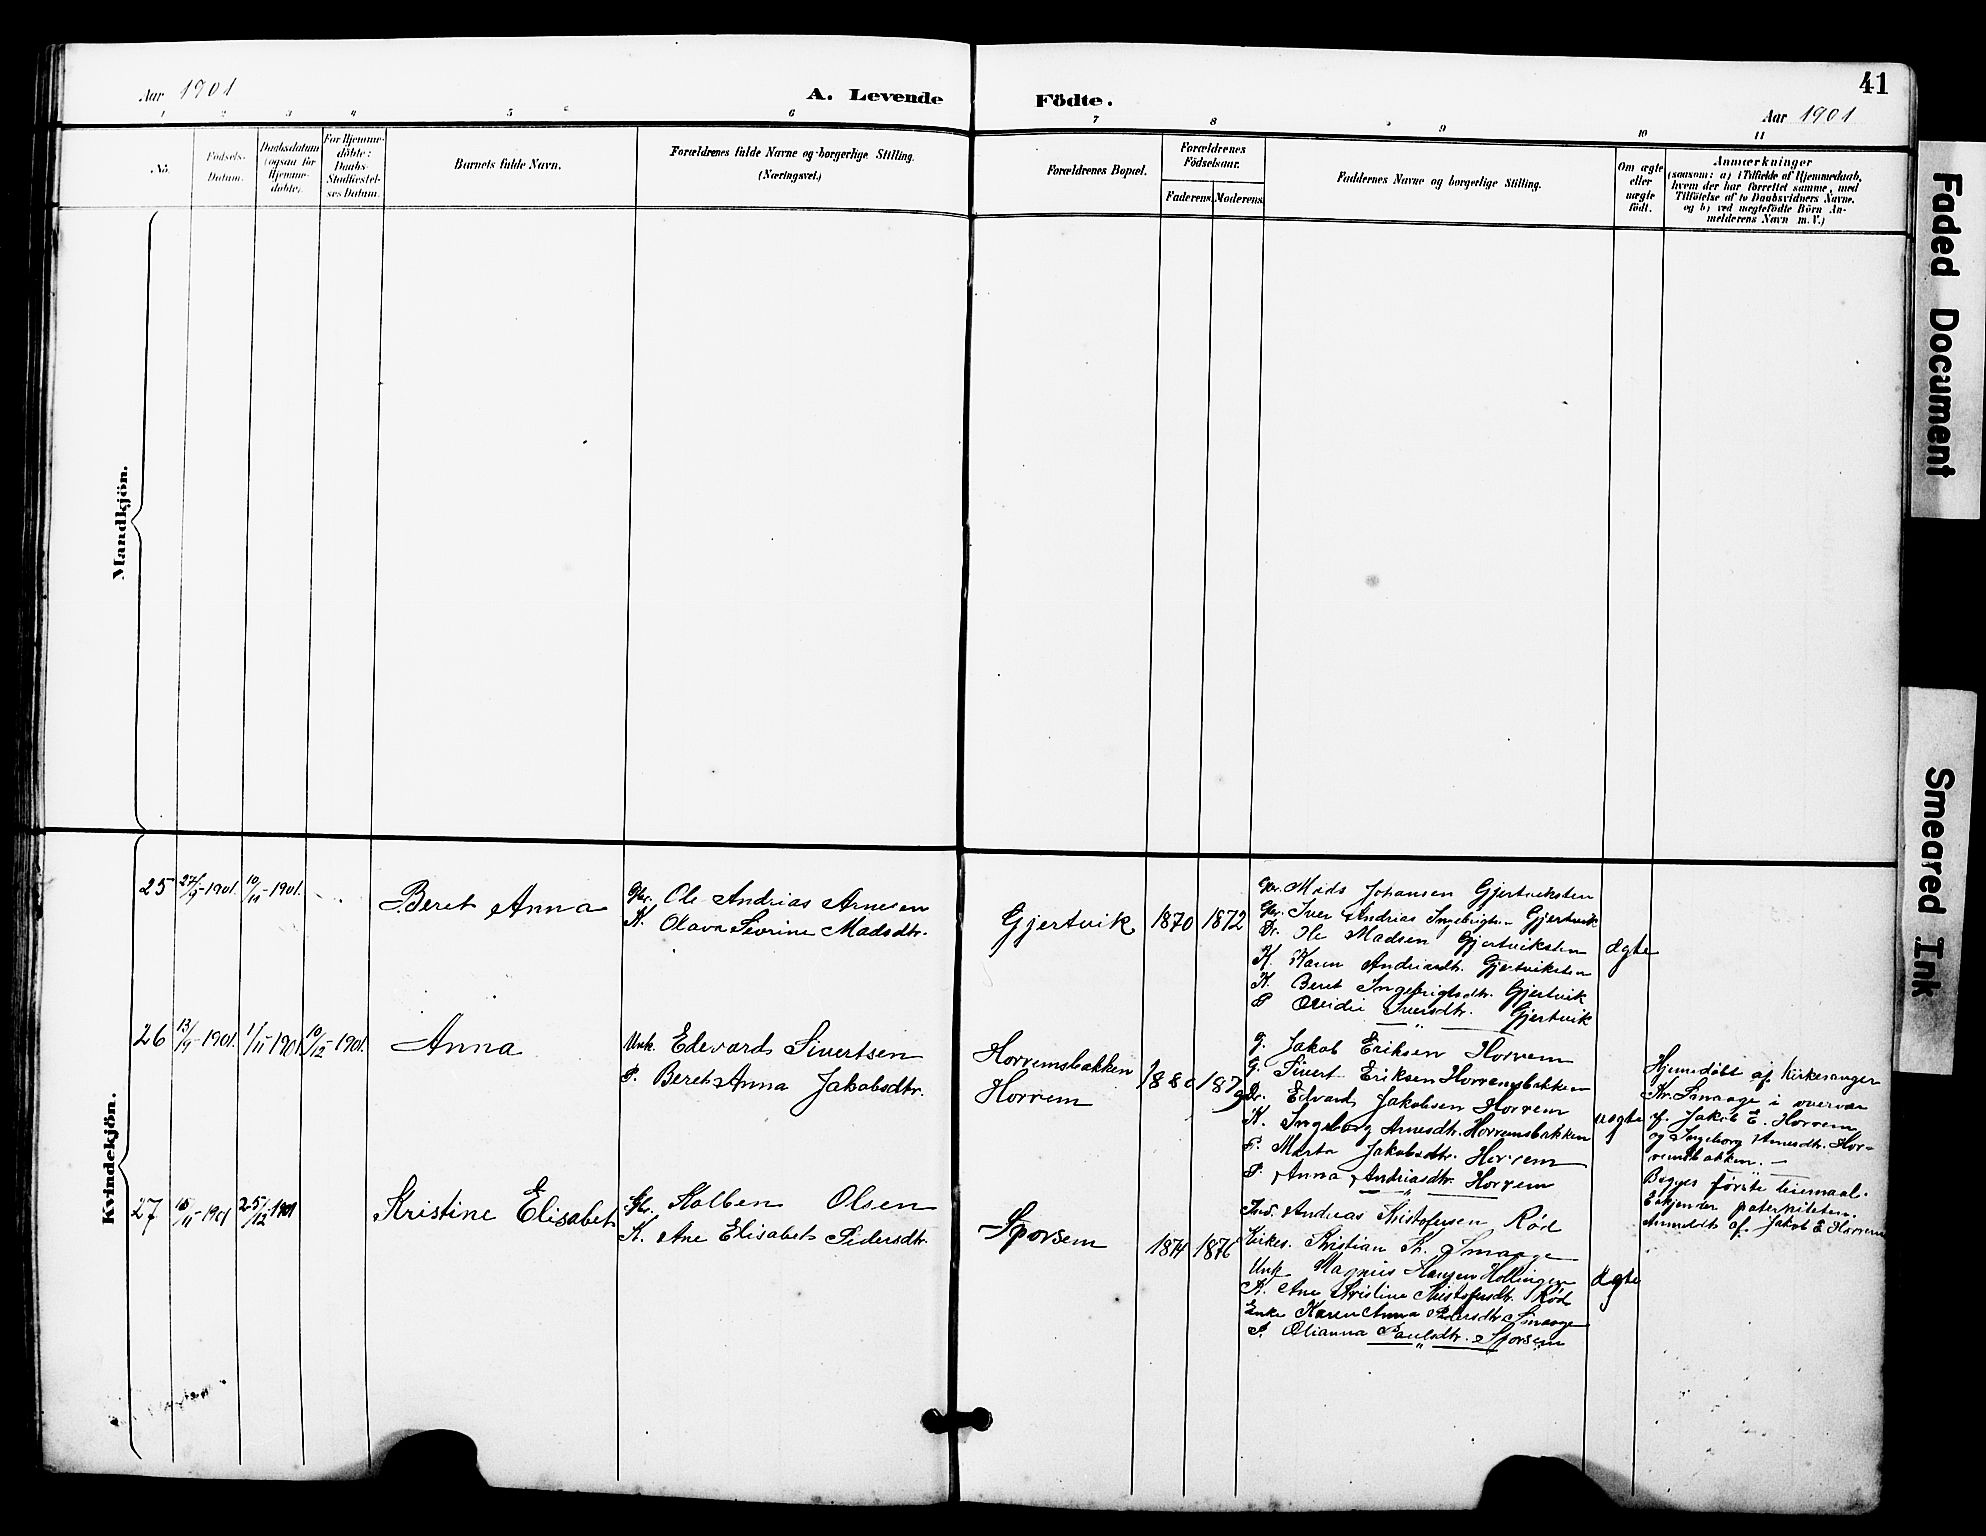 41
Aar 1901
A. Levende Födte.
Aar 1901
1 2 3 4 5 6 7 8 9 10 11
No.
Födsels-
Datum.
Daabsdatum
(ogsaa for
Hjemme-
döbte).
For Hjemme-
döbte:
Daabs-
Stadfæstel-
ses Datum.
Barnets fulde Navn.
Forældrenes fulde Navne og borgerlige Stilling.
(Næringsvei.)
Forældrenes Bopæl.
Forældrenes
Födselsaar.
Faderens. Moderens.
Faddernes Navne og borgerlige Stilling.
Om ægte
eller
uægte
födt.
Anmærkninger
(saasom: a) i Tilfælde af Hjemmedaab,
hvem der har forrettet samme, med
Tilföielse af to Daabsvidners Navne.
og b) ved uægtefödte Börn An-
melderens Navn m. V.)
Mandkjön.
Kvindekjön.
25 27/9-1901. 10/11-1901.
Beret Anna
Gbr. Ole Andrias Arnesen
K. Olava Sivrine Madsdtr.
Gjertvik
1870 1872
Gbr. Mads Johansen Gjertviksten
Gbr. Iver Andrias Ingebrigtsn Gjertvik
Dr. Ole Madsen Gjertviksten
K. Karen Andriasdtr. Gjertviksten
K. Beret Ingebrigtsdtr. Gjertvik
P. Iversdtr. Gjertvik
ægte
26 13/9-1901. 1/11-1901 10/12-1901.
Anna
Unk. Edevard Sivertsen
P. Beret Anna Jakobsdtr.
Horremsbakken
Horrem
1880 1879
G. Jakob Eriksen Horrem
G. Sivert Eriksen Horremsbakken
Dr. Edvard Jakobsen Horrem
K. Ingeborg Arnesdtr. Horremsbakken
P. Marta Jakobsdtr. Horrem
P. Anna Andriasdtr. Horrem
uægte
Hjemmedöbt af Kirkesanger
Kr. Smaage i overvær
af Jakob E. Horrem
og Ingeborg Arnesdtr. Hor-
remsbakken. —
Begges förste leiermaal.
Erkjender paterniteten.
Anmeldt af Jakob E Horrem
27 10/11-1901 25/12-1901
Kristine Elisabet
Gbr. Kolben Olsen
K. Ane Elisabet Pedersdtr.
Sporsem
1874 1876
Ind. Andreas Kristofersen Röd
Kirkes. Kristian Kr. Smaage
Unk Magnus Hansen Hollingen
K. Ane Kristine Kristofersdtr. Röd
Enke Karen Anna Pedersdtr Smaage
P. Olianna Paulsdtr. Sporsem
ægte
Faded Document
Smeared Ink